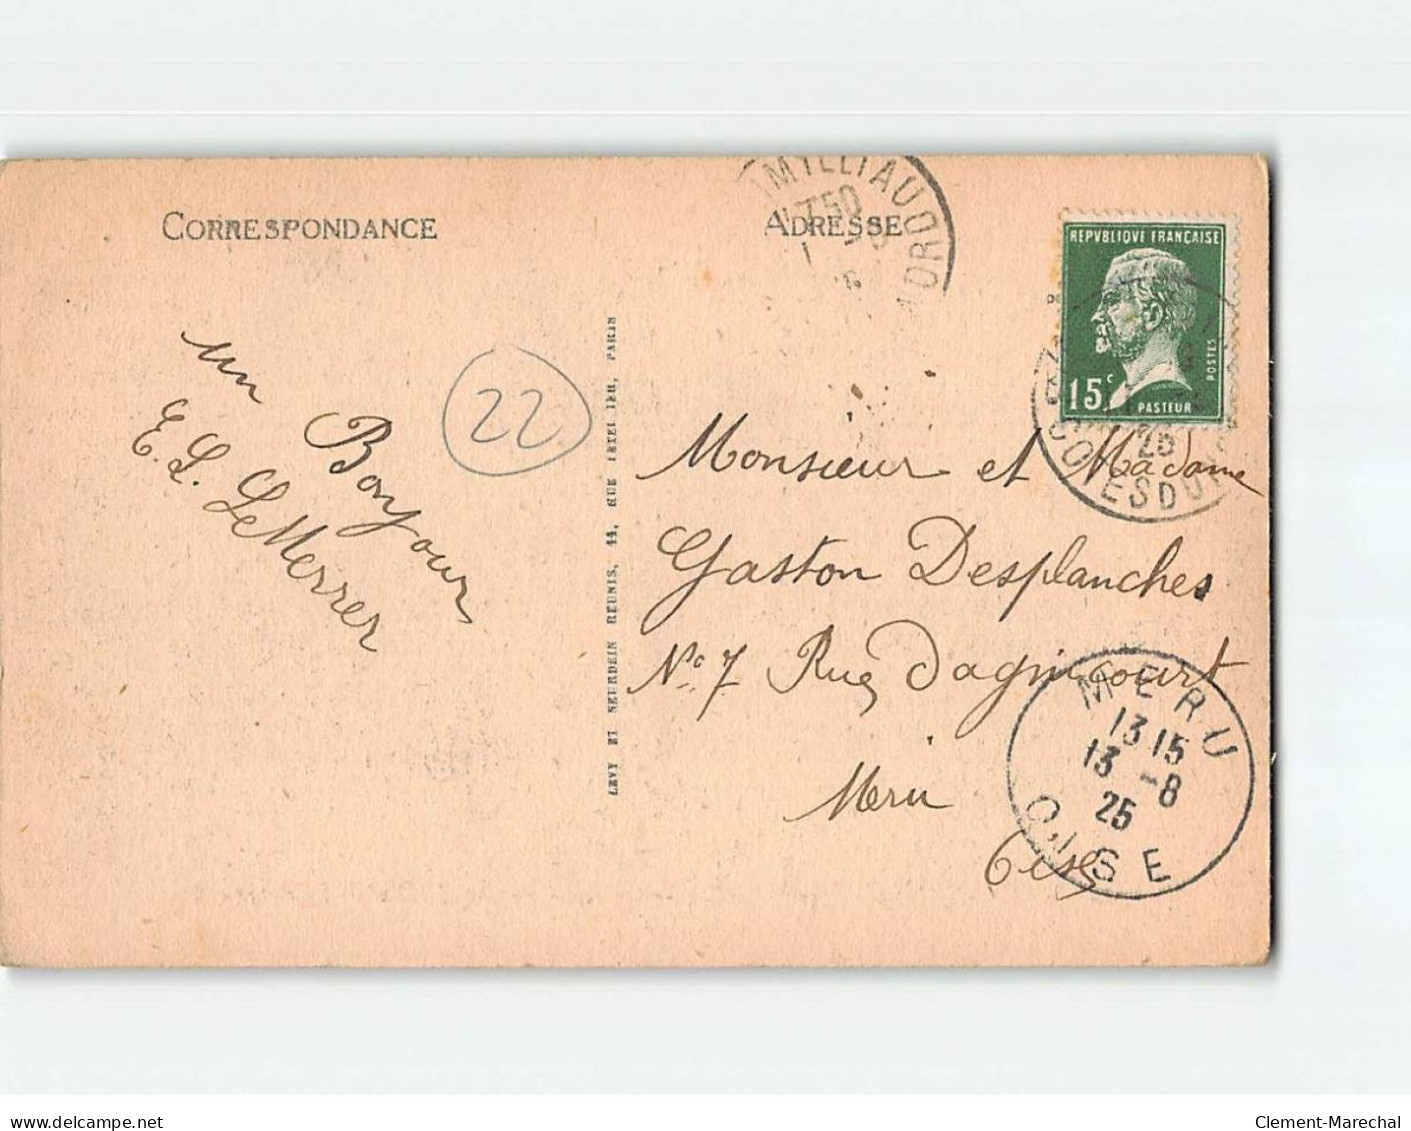 CORRESPONDANCE
ADRESSE
MILLIAU
REPVBLIQVE FRANÇAISE
POSTES
15 c
PASTEUR
25
un Bonjour
E. L. LeMerrer
22
LEVY ET NEURDEIN RÉUNIS, 44, RUE LETELLIER, PARIS
Monsieur et Madame
Gaston Desplanches
No 7 Rue Dagincourt
Meru
Oise
MERU
13 15
13 -8
25
OISE
www.delcampe.net
Clement-Marechal